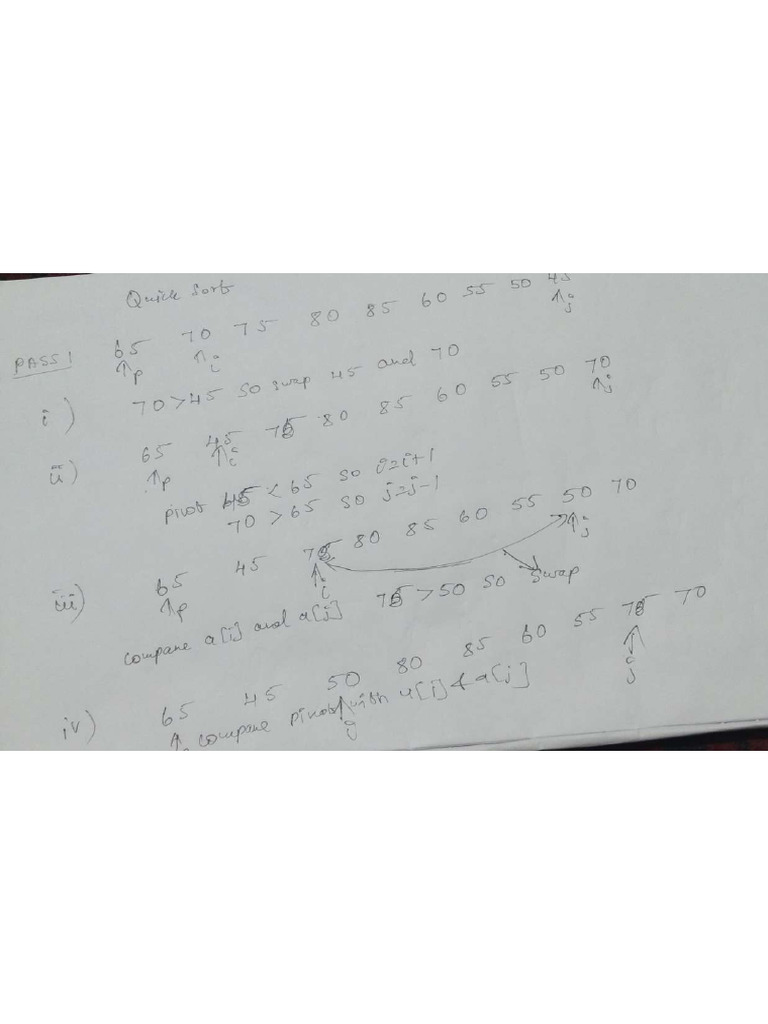 Quick Sort
PASS 1 65 70 75 80 85 60 55 50 45
↑p ↑i ↑j
i) 70 > 45 so swap 45 and 70
ii) 65 45 75 80 85 60 55 50 70
↑p ↑i ↑j
pivot 45 < 65 so i=i+1
70 > 65 so j=j-1
iii) 65 45 75 80 85 60 55 50 70
↑p ↑i ↑j
swap
compare a[i] and a[j] 75 > 50 so
iv) 65 45 50 80 85 60 55 75 70
↑ compare pivot with a[i] & a[j]
↑j